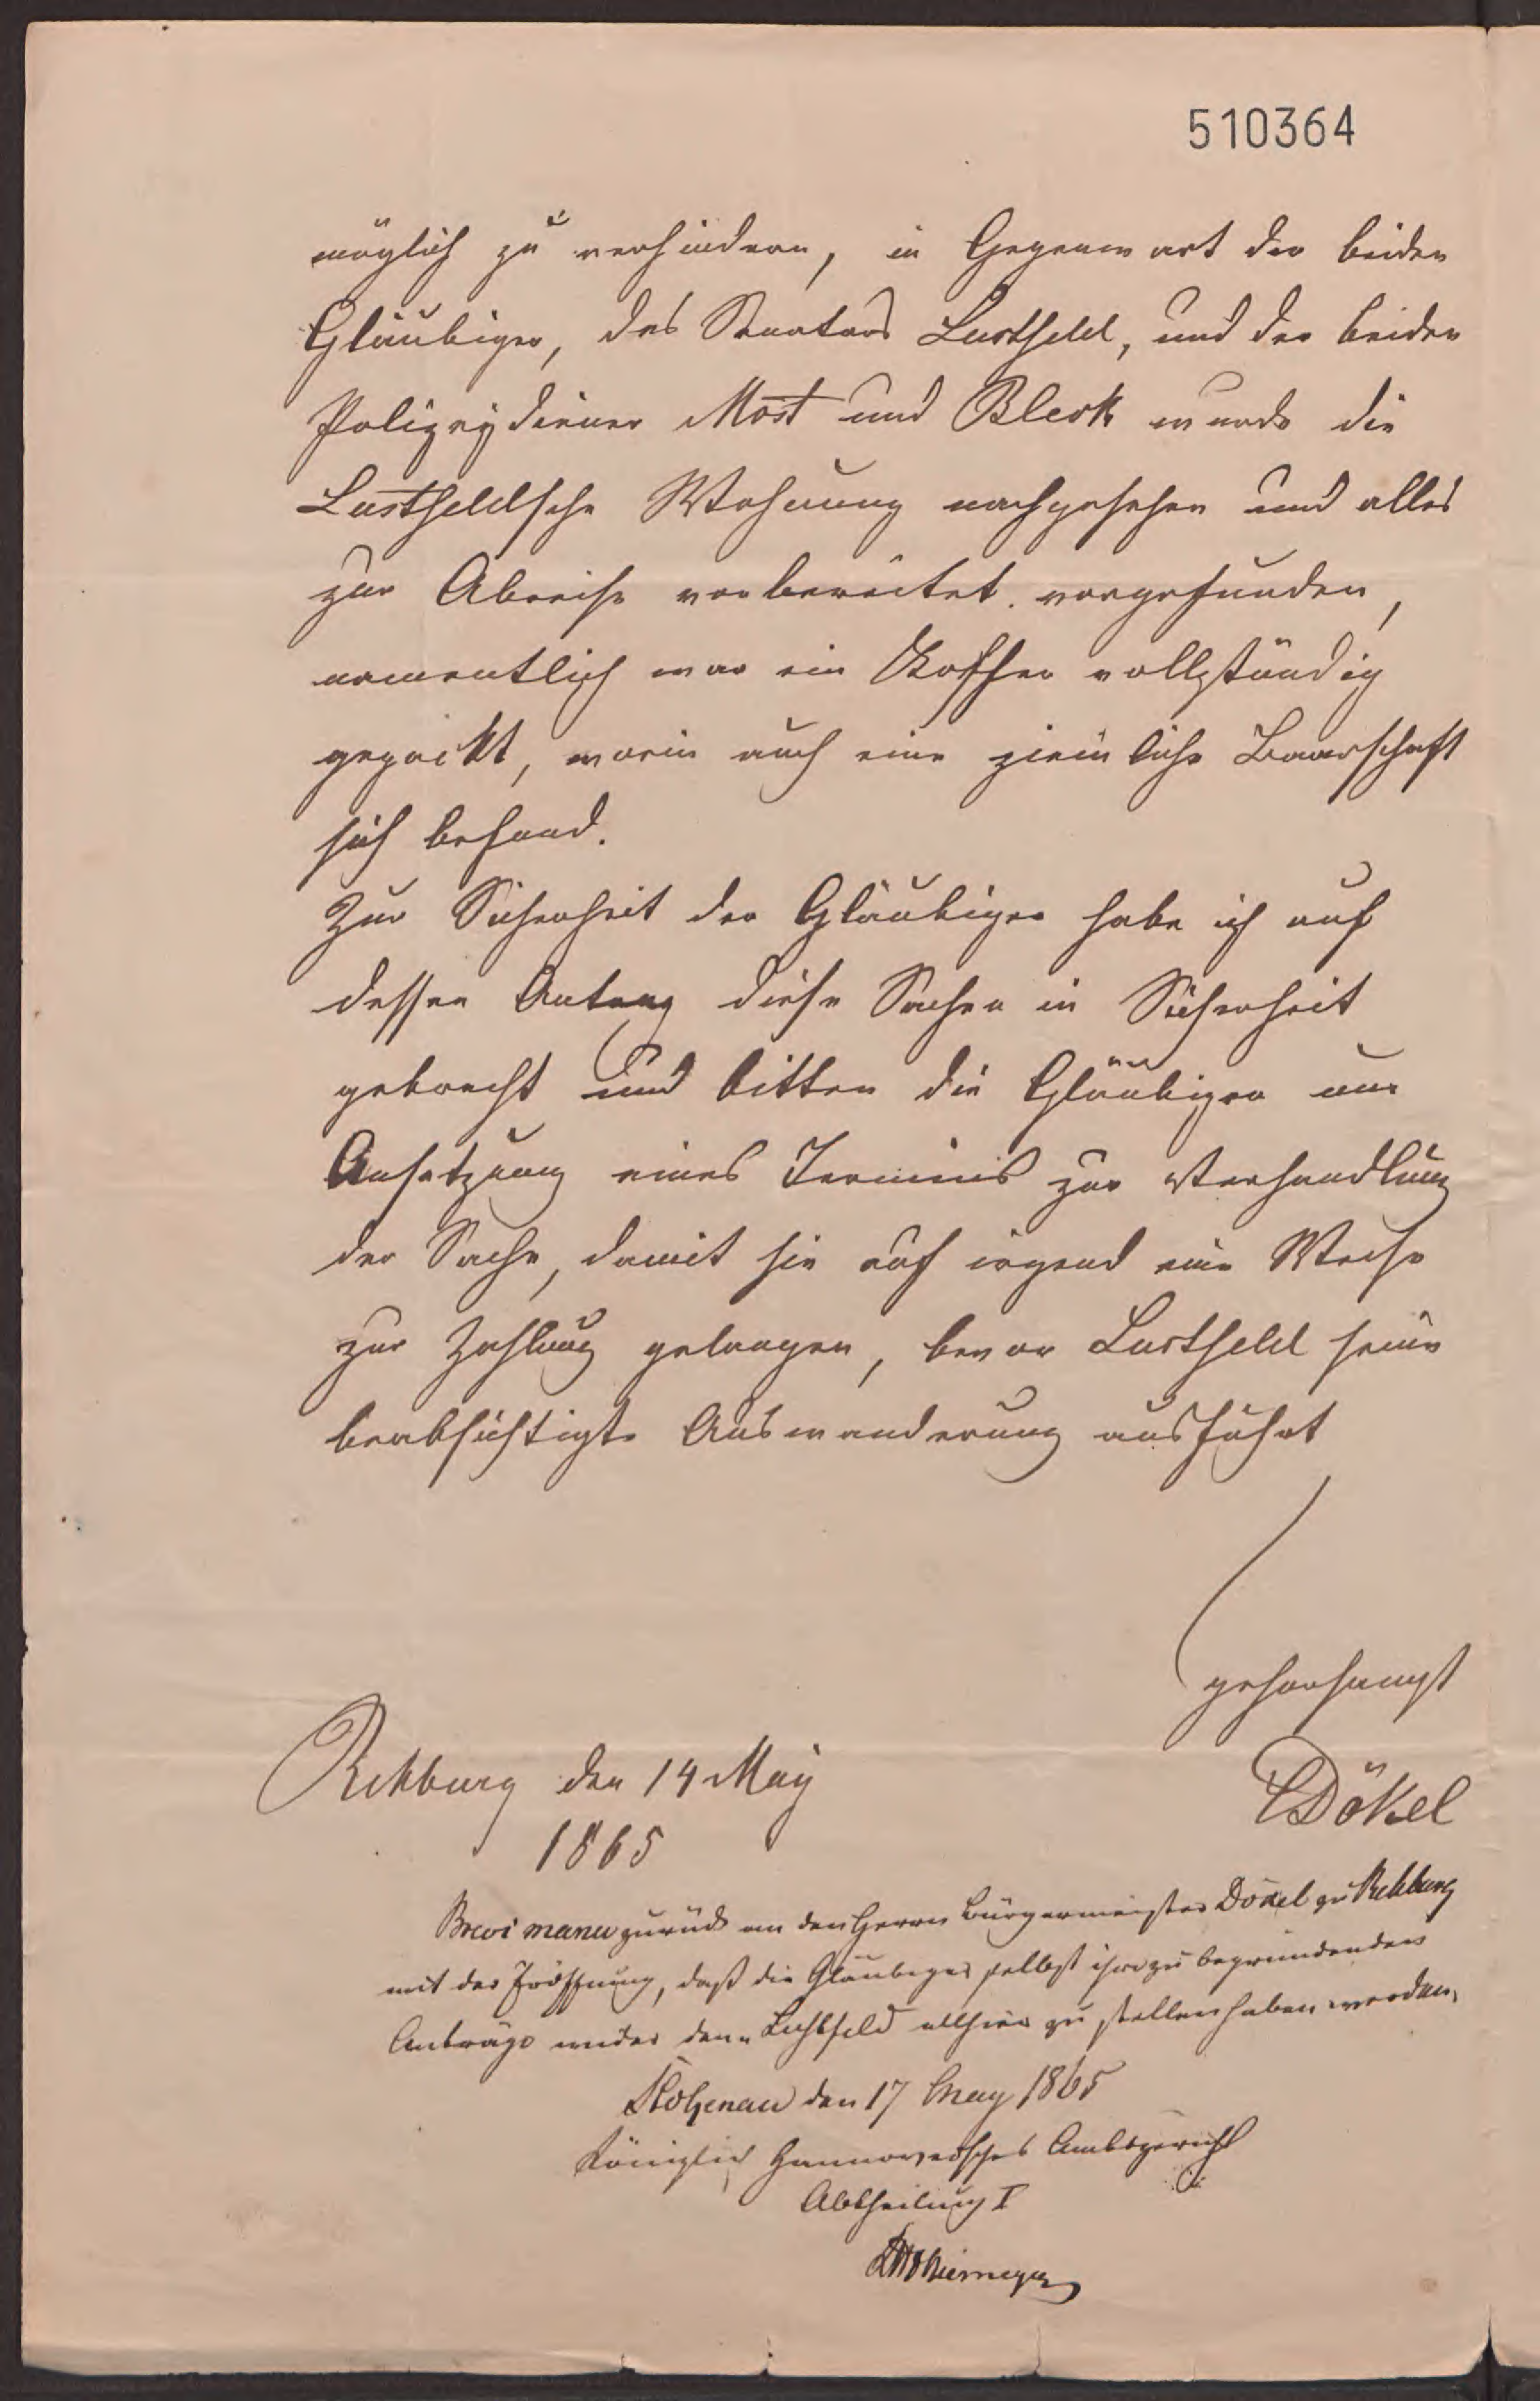 510364
möglich zu verhindern, in Gegenwart der beiden
Gläubiger, des Senators Lustfeld, und der beiden
Polizeydiener Most und Block wurde die
Lustfeldsche Wohnung nachgesehen und alles
zur Abreise vorbereitet vorgefunden,
namentlich war ein Koffer vollständig
gepackt, worin auch eine ziemliche Baarschaft
sich befand.
Zur Sicherheit der Gläubiger habe ich auf
dessen Antrag diese Sachen in Sicherheit
gebracht und bitten die Gläubiger um
Ansetzung eines Termins zur Verhandlung
der Sache, damit sie auf irgend eine Weise
zur Zahlung gelangen, bevor Lustfeld seine
beabsichtigte Auswanderung ausführt
gehorsamst
Rehburg den 14 May
Dökel
1865
Brevi manu zurück an den Herrn Bürgermeister Dökel zu Rehburg
mit der Eröffnung, daß die Gläubiger selbst ihre zu begründenden
Anträge wider den Lustfeld allhier zu stellen haben werden.
Stolzenau den 17 May 1865
Königlich Hannoversches Amtsgericht
Abtheilung I